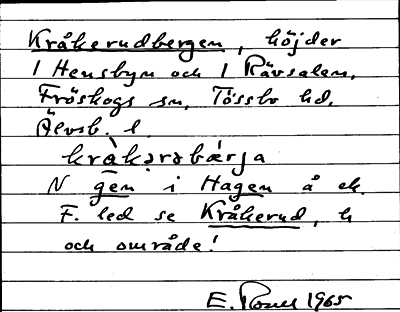 Kråkerudbergen, höjder
I Hensbyn och I Rävsalen,
Fröskogs sn, Tössbo hd,
Älvsb. l.
krå̀kərəbæ̀rja
N gen i Hagen å ek.
F. led se Kråkerud, h
och område!
E. 1965